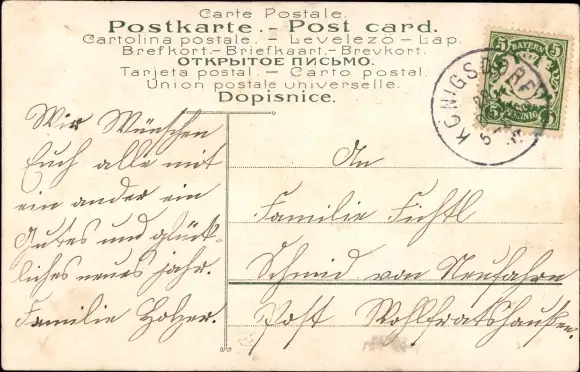 Carte Postale.
Postkarte. - Post card.
Cartolina postale. - Levelező - Lap.
Brefkort. - Briefkaart. - Brevkort.
ОТКРЫТОЕ ПИСЬМО.
Tarjeta postal. - Carto postal.
Union postale universelle.
Dopisnice.
5 BAYERN 5
5 PFENNIG 5
KÖNIGSDORF
Wir Wünschen
Euch alle mit
ein ander ein
Gutes und glück-
liches neues jahr.
Familie Holzer.
An
Familie Fichtl
Schmid von Neufahrn
Post Wohlfratshaußen.